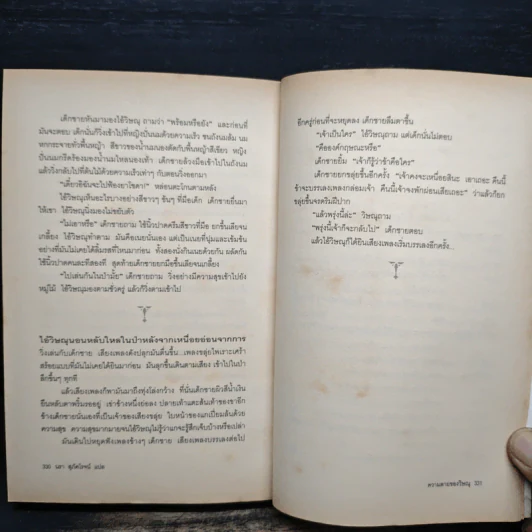 เด็กชายหันมามองไอ้วิษณุ ถามว่า "พร้อมหรือยัง" และก่อนที่
มันจะตอบ เด็กนั่นก็วิ่งเข้าไปที่หญิงปั่นนมด้วยความเร็ว ชนถังนมล้ม นม
หกกระจายทั่วพื้นหญ้า สีขาวของน้ำนมนองตัดกับพื้นหญ้าสีเขียว หญิง
ปั่นนมกรีดร้องมองน้ำนมไหลนองเท้า เด็กชายล้วงมือเข้าไปในถังนม
แล้ววิ่งกลับไปที่ต้นไม้ด้วยความเร็วเท่าๆ กับตอนวิ่งออกมา
"เดี๋ยวอิฉันจะไปฟ้องยาโชดา!" หล่อนตะโกนตามหลัง
ไอ้วิษณุเห็นอะไรบางอย่างสีขาวๆ ข้นๆ ที่มือเด็ก เด็กชายยื่นมา
ให้เขา ไอ้วิษณุนิ่งมองไม่ขยับตัว
"ไม่เอาหรือ" เด็กชายถาม ใช้นิ้วปาดครีมสีขาวที่มือ ยกขึ้นเลียจน
เกลี้ยง ไอ้วิษณุทำตาม มันคือเนยนั่นเอง แต่เป็นเนยที่นุ่มและเข้มข้น
อย่างที่มันไม่เคยได้ลิ้มรสที่ไหนมาก่อน ทั้งสองนั่งกินเนยด้วยกัน ผลัดกัน
ใช้นิ้วปาดคนละทีสองที สุดท้ายเด็กชายยกมือขึ้นเลียจนเกลี้ยง
"ไปเล่นกันในป่ามั้ย" เด็กชายถาม วิ่งอย่างมีความสุขเข้าไปยัง
หมู่ไม้ ไอ้วิษณุมองตามชั่วครู่ แล้วก็วิ่งตามเข้าไป
ไอ้วิษณุนอนหลับไหลในป่าหลังจากเหนื่อยอ่อนจากการ
วิ่งเล่นกับเด็กชาย เสียงเพลงดังปลุกมันตื่นขึ้น...เพลงขลุ่ยไพเราะเศร้า
สร้อยแบบที่มันไม่เคยได้ยินมาก่อน มันลุกขึ้นเดินตามเสียง เข้าไปในป่า
ลึกขึ้นๆ ทุกที
แล้วเสียงเพลงก็พามันมาถึงทุ่งโล่งกว้าง ที่นั่นเด็กชายผิวสีน้ำเงิน
ยืนหลับตาพริ้มรออยู่ เข่าข้างหนึ่งย่อลง ปลายเท้าแตะส้นเท้าของขาอีก
ข้างเด็กชายนั่นเองที่เป็นเจ้าของเสียงขลุ่ย ใบหน้าของแกเปี่ยมล้นด้วย
ความสุข ความสุขมากมายจนไอ้วิษณุไม่รู้ว่าแกจะรู้สึกเจ็บบ้างหรือเปล่า
มันเดินไปหยุดฟังเพลงข้างๆ เด็กชาย เสียงเพลงบรรเลงต่อไป
330 นภา สุภัควิจรน์ แปล
อีกครู่ก่อนที่จะหยุดลง เด็กชายลืมตาขึ้น
"เจ้าเป็นใคร" ไอ้วิษณุถาม แต่เด็กนั่นไม่ตอบ
"คือองค์กฤษณะหรือ"
เด็กชายยิ้ม "เจ้าก็รู้ว่าข้าคือใคร"
เด็กชายยกขลุ่ยขึ้นอีกครั้ง "เจ้าคงจะเหนื่อยสินะ เอาเถอะ คืนนี้
ข้าจะบรรเลงเพลงกล่อมเจ้า คืนนี้เจ้าจงพักผ่อนเสียเถอะ" ว่าแล้วก็ยก
ขลุ่ยขึ้นจรดริมฝีปาก
"แล้วพรุ่งนี้ล่ะ" วิษณุถาม
"พรุ่งนี้เจ้าก็จะกลับไป" เด็กชายตอบ
แล้วไอ้วิษณุก็ได้ยินเสียงเพลงเริ่มบรรเลงอีกครั้ง...
ความตายของวิษณุ 331